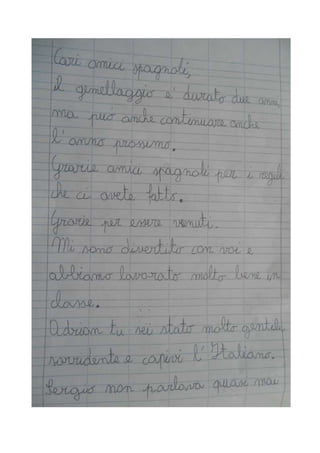 Cari amici spagnoli,
il gemellaggio è durato due anni,
ma può anche continuare anche
l'anno prossimo.
Grazie amici spagnoli per i regali
che ci avete fatto.
Grazie per essere venuti.
Mi sono divertito con voi e
abbiamo lavorato molto bene in
classe.
Adrian tu sei stato molto gentile,
sorridente e capivi l'Italiano.
Sergio non parlava quasi mai